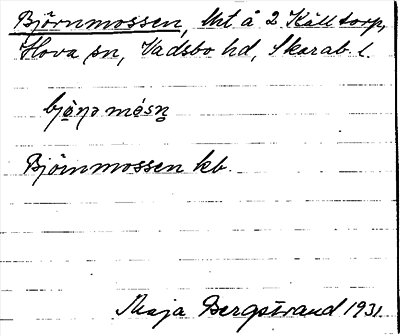 Björnmossen, lht å 2 Källtorp,
Hova sn, Vadsbo hd, Skarab. l.
bjö̀ṇa mósn̥
Björnmossen kb.
Maja Bergstrand 1931.